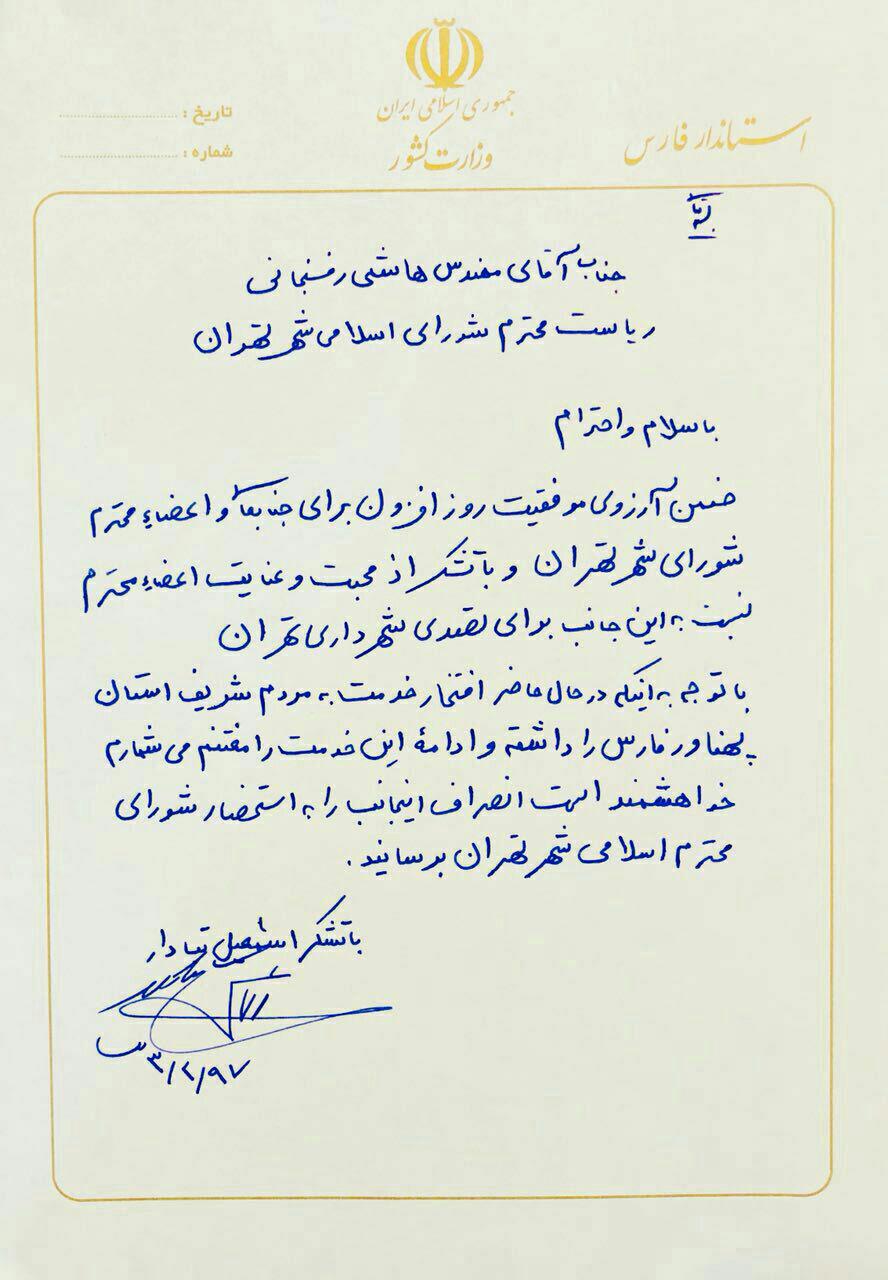 جمهوری اسلامی ایران
وزارت کشور
استاندار فارس
تاریخ :
شماره :
جناب آقای مهندس هاشمی رفسنجانی
ریاست محترم شورای اسلامی شهر تهران
با سلام و احترام
ضمن آرزوی موفقیت روز افزون برای جنابعالی و اعضاء محترم
شورای شهر تهران و با تشکر از محبت و عنایت اعضاء محترم
نسبت به این جانب برای تصدی شهرداری تهران
با توجه به اینکه در حال حاضر افتخار خدمت به مردم شریف استان
پهناور فارس را داشته و ادامهٔ این خدمت را مغتنم می شمارم
خواهشمند است انصراف اینجانب را به استحضار شورای
محترم اسلامی شهر تهران برسانید .
با تشکر اسمعیل تبادار
۹۷/۲/۳